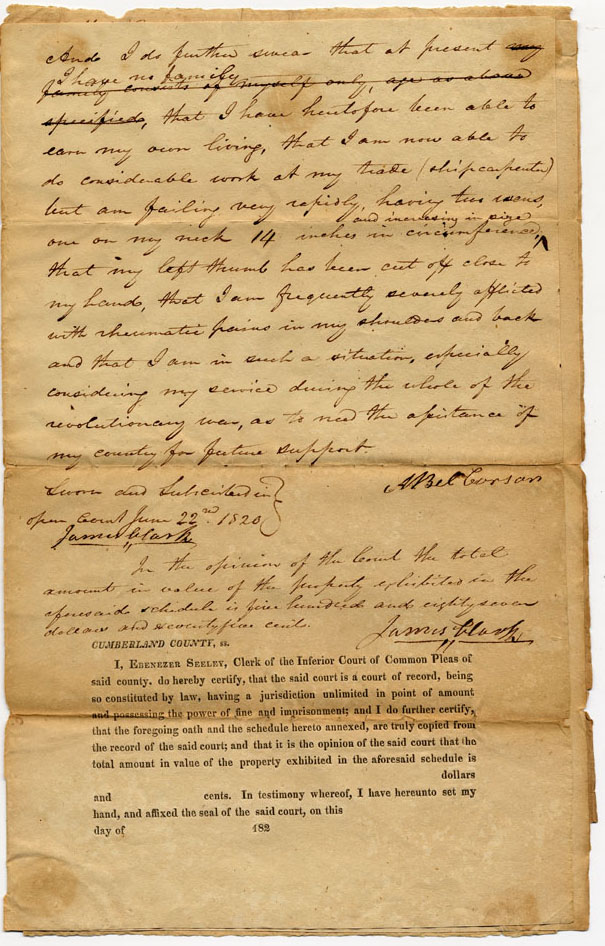 And I do further swear that at present my
I have no family
family consists of myself only, age as above
specified, that I have heretofore been able to
earn my own living, that I am now able to
do considerable work at my trade (shipcarpenter)
but am failing very rapidly, having two wens,
and increasing in size
one on my neck 14 inches in circumference,
that my left thumb has been cut off close to
my hand, that I am frequently severely afflicted
with rheumatic pains in my shoulders and back
and that I am in such a situation, especially
considering my service during the whole of the
revolutionary war, as to need the assistance of
my country for future support
Sworn and Subscribed in
Abel Corson
open Court June 22nd. 1820
James Clark
In the opinion of the Court the total
amount in value of the property exhibited in the
aforesaid schedule is five hundred and eighty seven
dollars and seventy five cents.
James Clark
CUMBERLAND COUNTY, ss.
I, EBENEZER SEELEY, Clerk of the Inferior Court of Common Pleas of
said county, do hereby certify, that the said court is a court of record, being
so constituted by law, having a jurisdiction unlimited in point of amount
and possessing the power of fine and imprisonment; and I do further certify,
that the foregoing oath and the schedule hereto annexed, are truly copied from
the record of the said court; and that it is the opinion of the said court that the
total amount in value of the property exhibited in the aforesaid schedule is
dollars
and cents. In testimony whereof, I have hereunto set my
hand, and affixed the seal of the said court, on this
day of 182